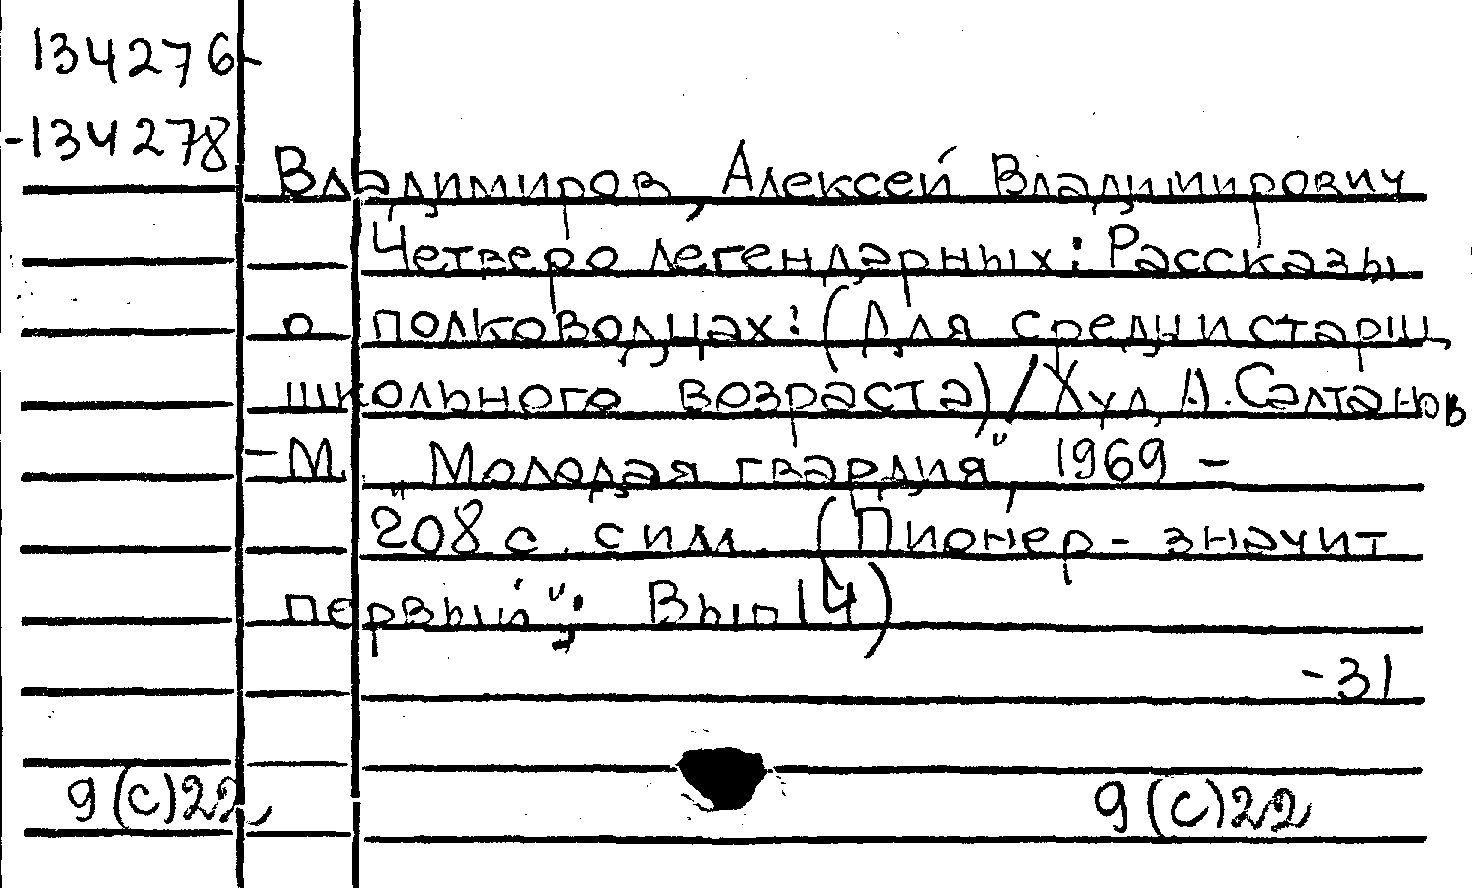 134276-
-134278
Владимиров, Алексей Владимирович
Четверо легендарных: Рассказы
о полководцах: (Для средн и старш
школьного возраста) / Худ А. Салтанов
- М. "Молодая гвардия", 1969 -
208 с. с илл. (Пионер - значит
первый"; Вып 14)
-31
9(с)22 9(с)22